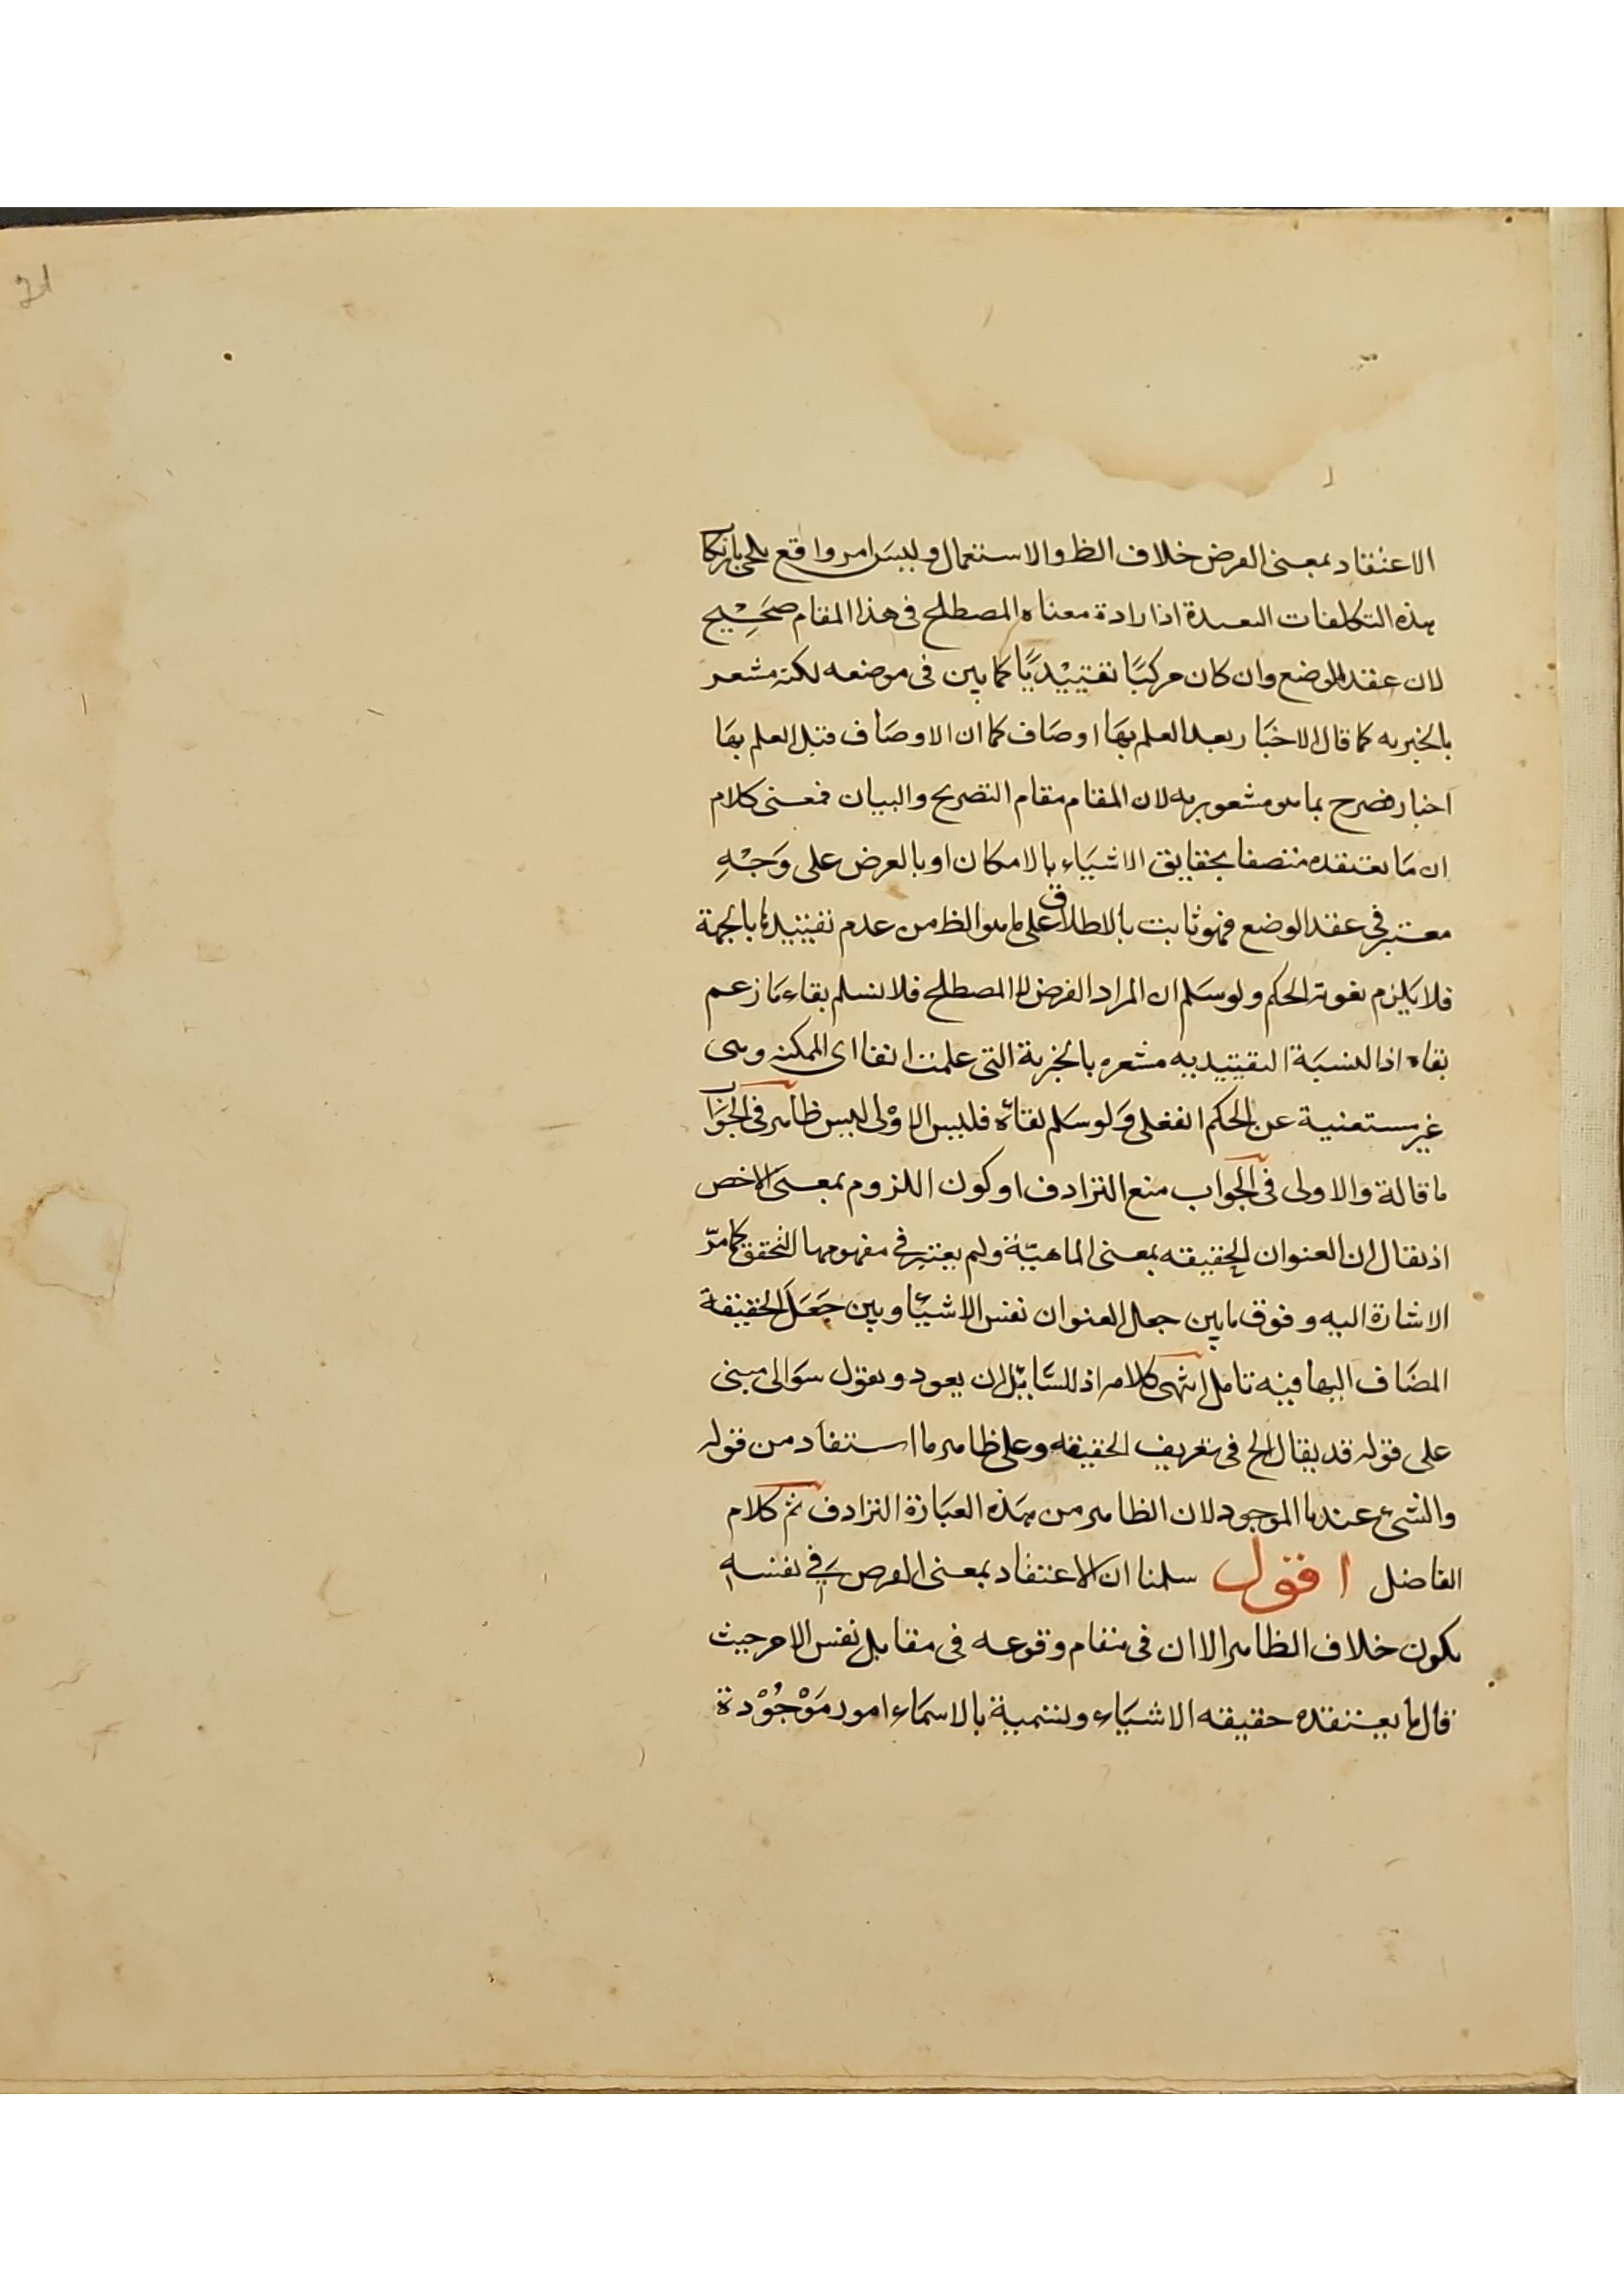 الاعتقاد بمعنى الفرض خلاف الظ والاستعمال وليس امر واقع يلجى بارتكا
هذه التكلفات البعيدة اذ ارادة معناه المصطلح فى هذا المقام صحيح
لان عقد الوضع وان كان مركبًا تقييديًا كما بين فى موضعه لكنه مشعر
بالخبريه كما قال الاخبار بعد العلم بها اوصاف كما ان الاوصاف قبل العلم بها
اخبار فصرح بما هو مشعور به لان المقام مقام التصريح والبيان فمعنى كلام
ان ما نعتقده متصفا بحقايق الاشياء بالامكان او بالفرض على وجه
معتبر فى عقد الوضع فهو ثابت بالاطلاق على ما هو الظ من عدم تقييدها بالجهة
فلا يلزم لغوية الحكم ولو سلم ان المراد الفرض لا المصطلح فلا نسلم بقاء ما زعم
بقاه اذ النسبة التقييديه مشعره بالخبرية التى علمت انفا اى الممكنه وهى
غير مستغنية عن الحكم الفعلى ولو سلم بقائه فليس الاولى لليس ظاهر فى الجواب
ما قالة والاولى فى الجواب منع الترادف او كون اللزوم بمعنى الاخص
اذ يقال ان العنوان الحقيقه بمعنى الماهيّة ولم يعتبر فى مفهومها التحقق كما مرّ
الاشارة اليه وفوق ما بين جعل العنوان نفس الاشيئا وبين جعل الحقيقة
المضاف اليها فيه تامل انتهى كلامه اذ للسائل ان يعود ويقول سوالى مبنى
على قوله قد يقال الح فى تعريف الحقيقه وعلى ظاهر ما استفاد من قوله
والشىء عندنا الموجود لان الظاهر من هذه العبارة الترادف ثم كلام
الفاضل اقول سلمنا ان الاعتقاد بمعنى الفرض فى نفسه
يكون خلاف الظاهر الا ان فى مقام وقوعه فى مقابل نفس الامر حيث
قال ما يعتقده حقيقه الاشياء ونسمية بالاسماء امور موجودة